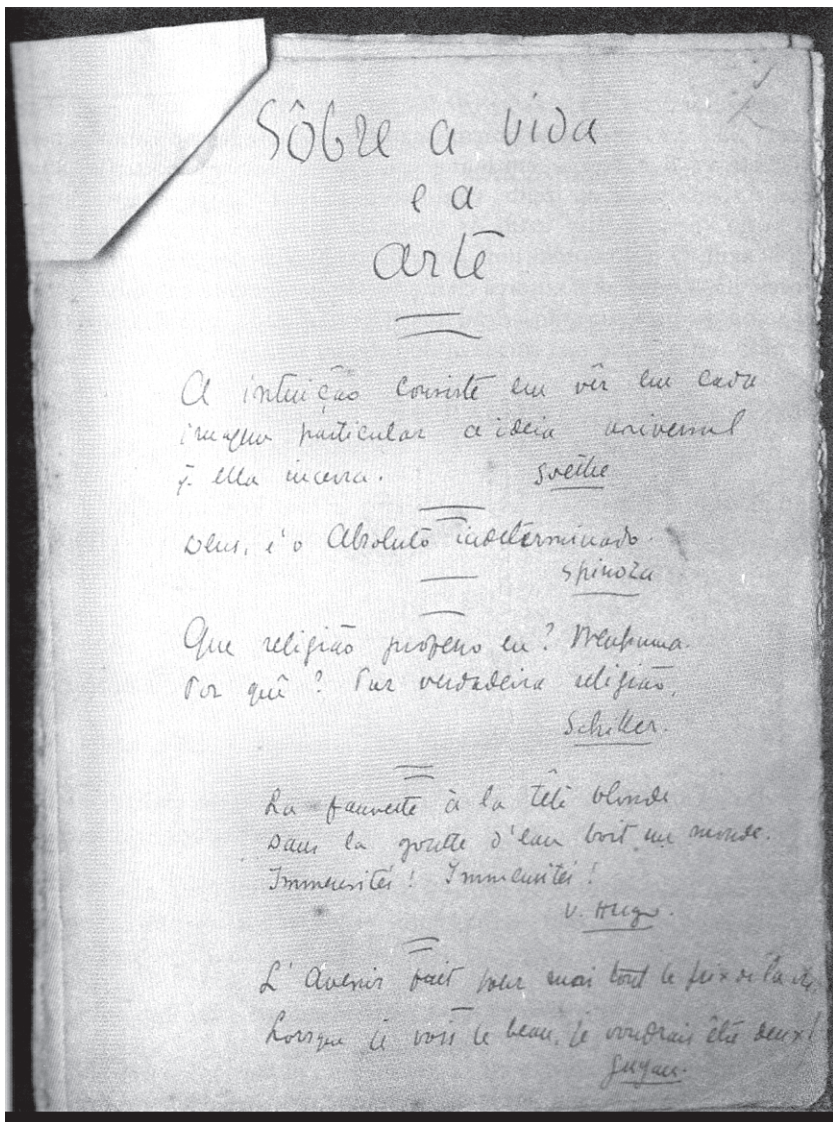 Sôbre a vida
e a
arte
A intuição consiste em vêr em cada
imagem particular a ideia universal
q. ella incerra.
Goethe
Deus, é o Absoluto indeterminado.
Spinoza
Que religião professo eu? Nenhuma.
Por quê? Por verdadeira religião.
Schiller.
La fauvette à la tête blonde
Dans la goutte d'eau boit un monde.
Immensités! Immensités!
V. Hugo.
L'Avenir fait pour moi tout le prix de la vie,
Lorsque je vois le beau, je voudrais être deux!
Guyau.